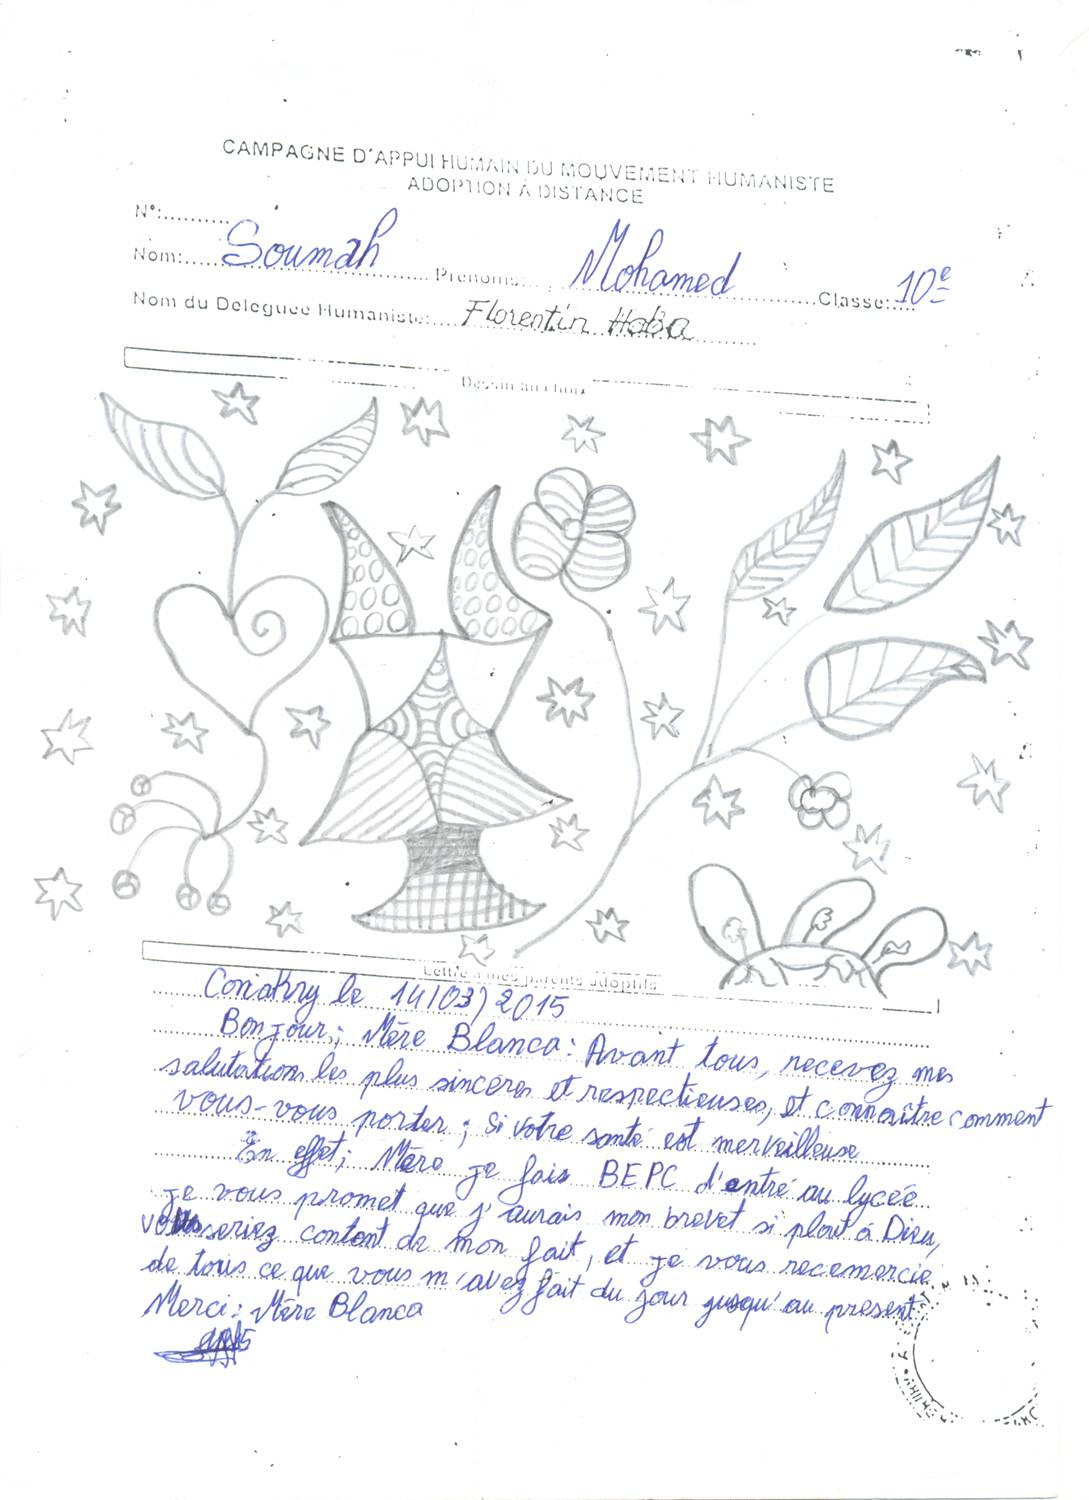 CAMPAGNE D'APPUI HUMAIN DU MOUVEMENT HUMANISTE
ADOPTION À DISTANCE
N°:..........
Nom:..... Soumah Prénoms: Mohamed Classe: 10e
Nom du Deleguée Humaniste: Florentin Haba
Dessin au choix
Lettre à mes parents adoptifs
Conakry le 14/03/2015
Bonjour; Mère Blanca: Avant tous, recevez mes
salutations les plus sincères et respectieuses, et connaître comment
vous-vous porter; Si votre santé est merveilleuse
En effet; Mère je fais BEPC d'entré au lycée
je vous promet que j'aurais mon brevet si plait à Dieu,
vous seriez content de mon fait, et je vous recemercie
de tous ce que vous m'avez fait du jour jusqu'au présent
Merci: Mère Blanca